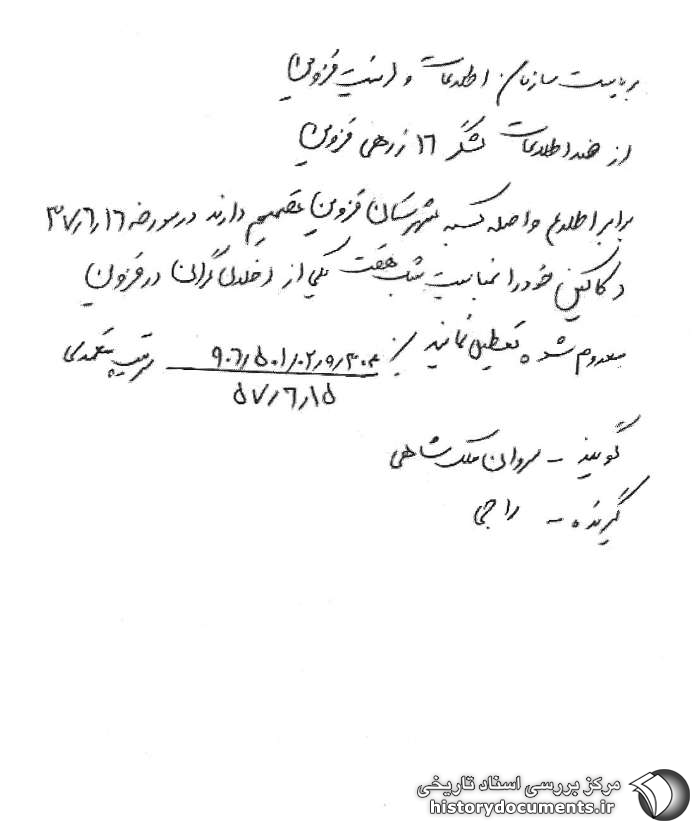 بریاست سازمان اطلاعات و امنیت قزوین
از ضد اطلاعات لشگر ۱۶ زرهی قزوین
برابر اطلاع واصله کسبه شهرستان قزوین تصمیم دارند در مورخه ۳۷٫۶٫۱۶
دکاکین خود را بمناسبت شب هفت یکی از اخلال گران در قزوین
معدوم شده تعطیل نمایند ۹۰۶٫۵۰۱٫۰۲٫۹٫۳۰۴
۵۷٫۶٫۱۵
گوینده - سروان ملک شاهی
گیرنده - راجی
مرکز بررسی اسناد تاریخی
historydocuments.ir